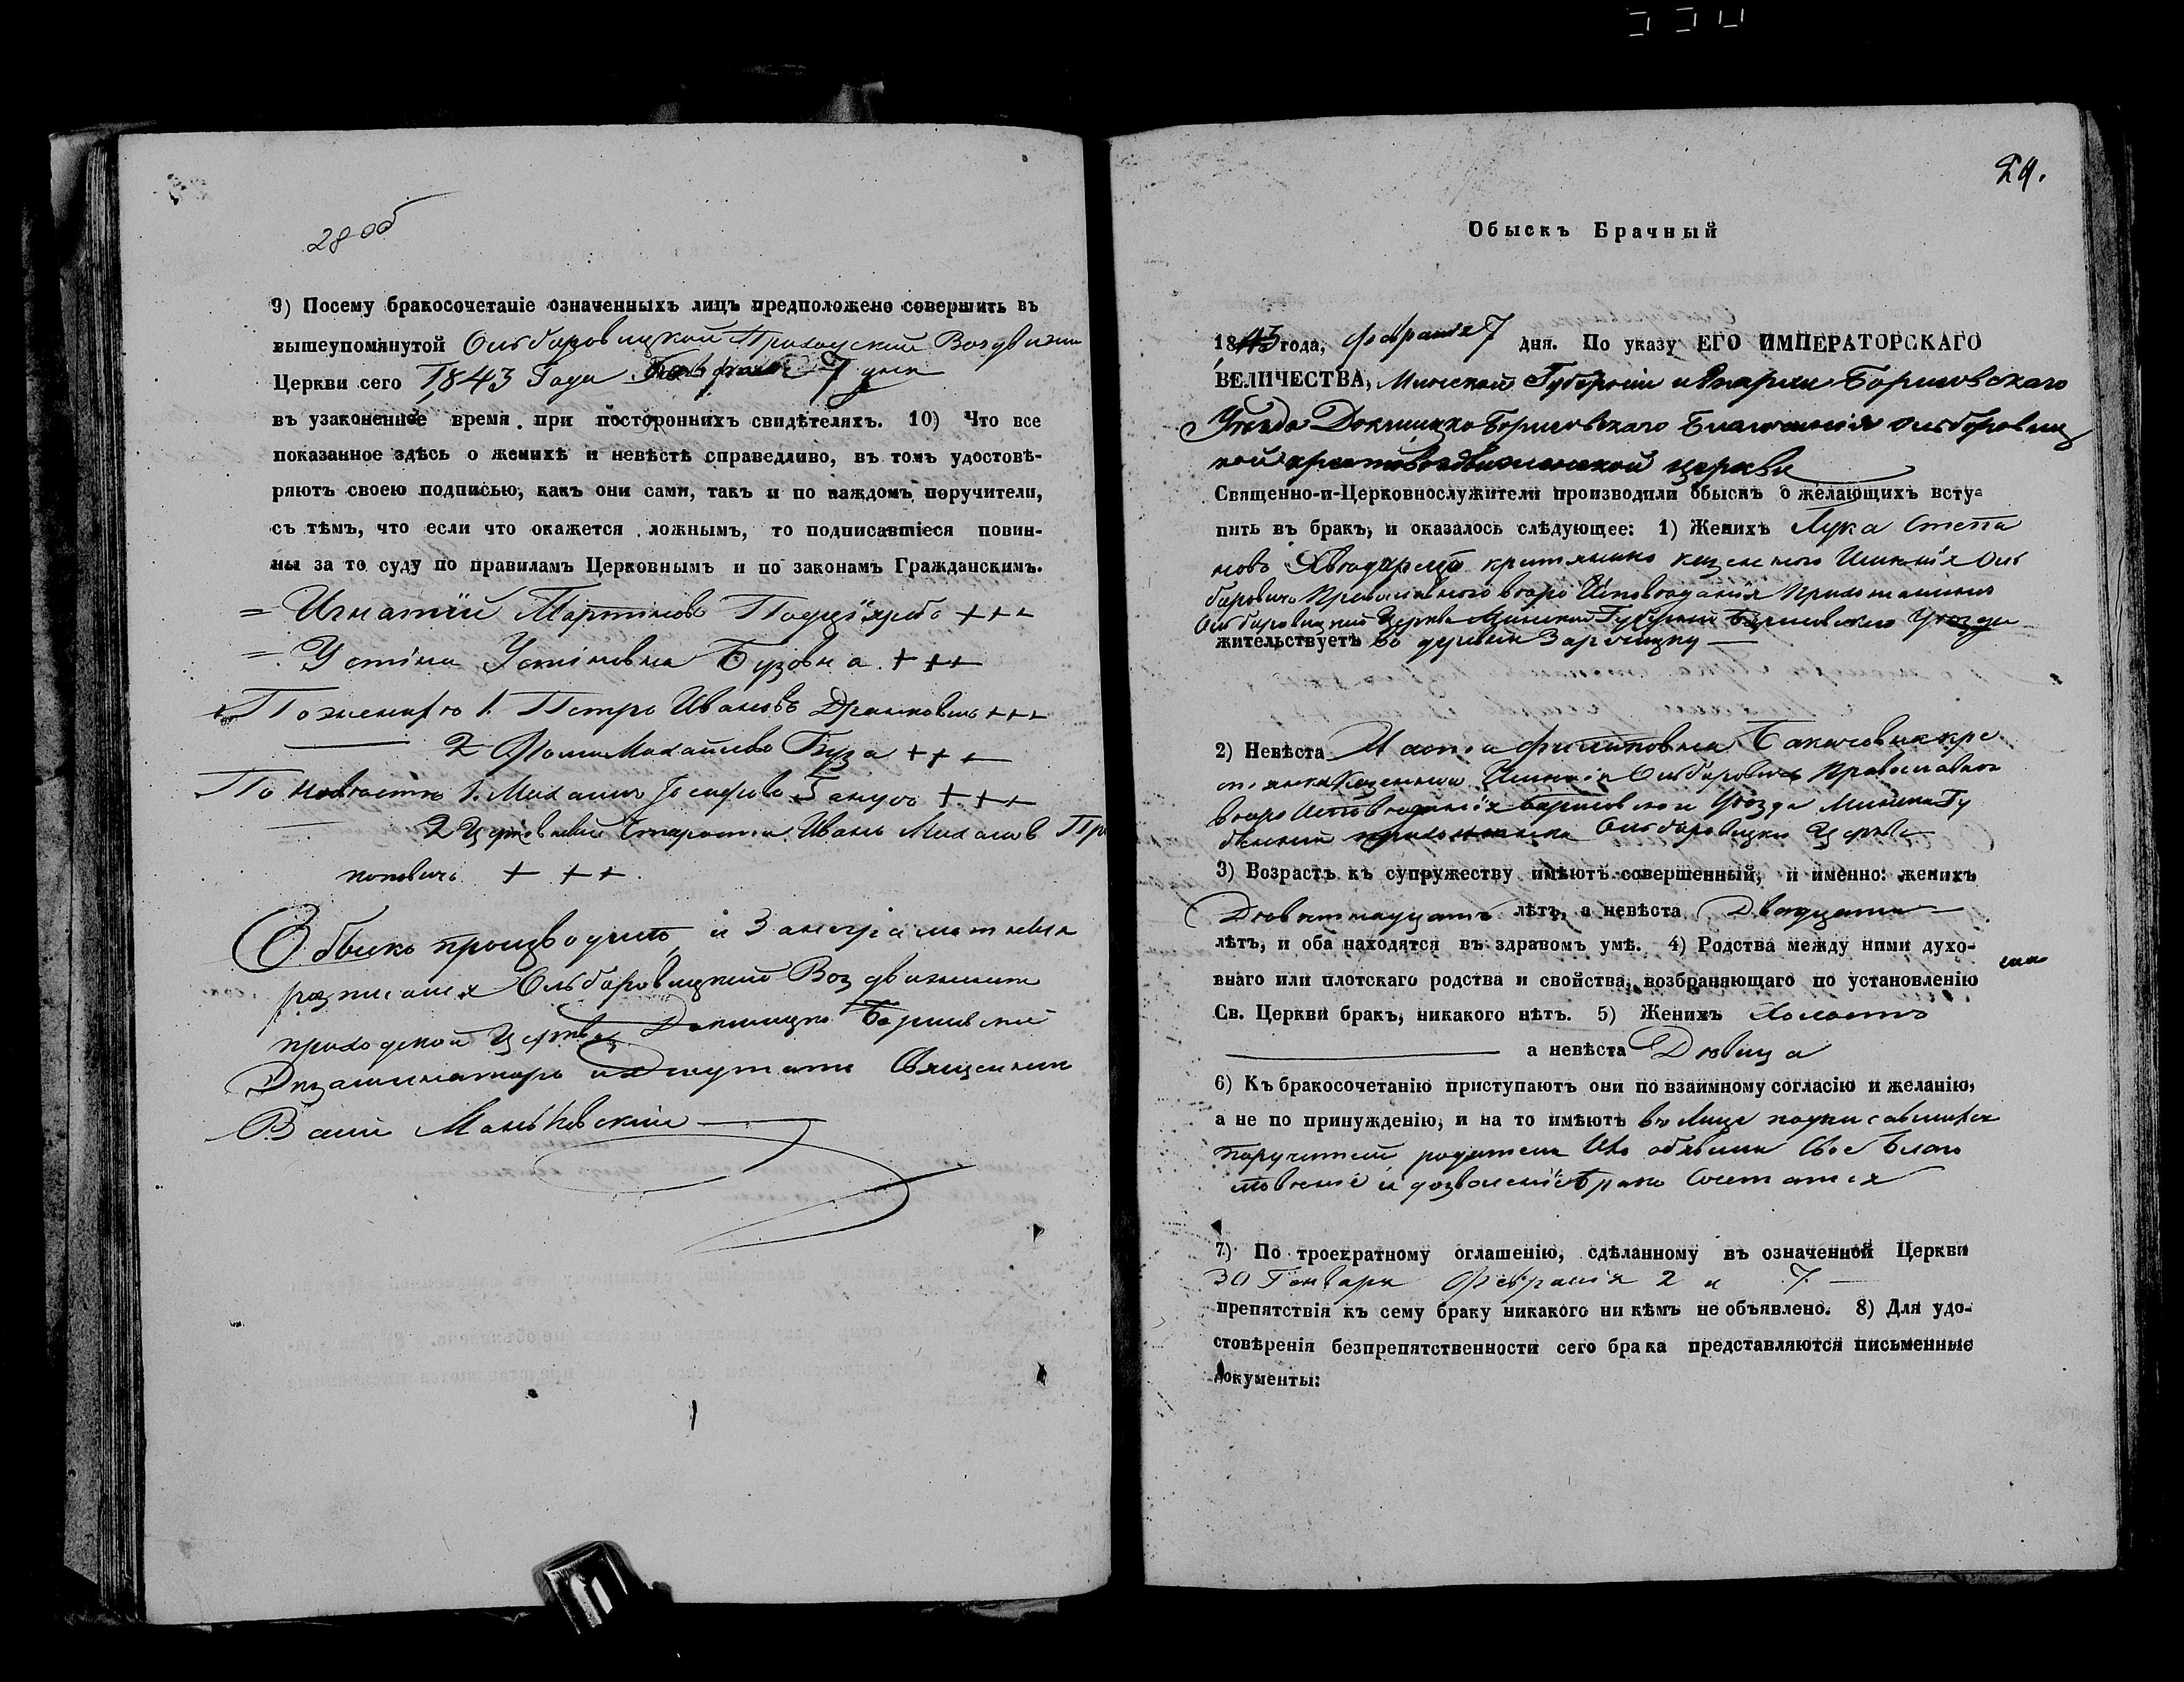 28 об
9) Посему бракосочетаніе означенныхъ лицъ предположено совершить въ
вышеупомянутой Ольборовицкой Приходской Воздвижен
Церкви сего 1843 Года Февраля 7 дня
въ узаконенное время при постороннихъ свидѣтеляхъ. 10) Что все
показанное здѣсь о женихѣ и невѣстѣ справедливо, въ томъ удостовѣ-
ряютъ своею подписью, какъ они сами, такъ и по каждомъ поручители,
съ тѣмъ, что если что окажется ложнымъ, то подписавшіеся повин-
ны за то суду по правиламъ Церковнымъ и по законамъ Гражданскимъ.
= Игнатій Мартиновъ +++
= Устіна Устіновна Бузовна +++
По женихѣ 1. Петръ Ивановъ +++
2 Фома Михайловъ Буза +++
По невѣстѣ 1. Михаилъ Іосифовъ +++
2 Церковный Староста Иванъ Михаловъ Пр
коповичъ + ++
Обыскъ производилъ и За неграматныхъ
росписался Ольборовицкой Воздвиженской
приходской Церкви Докшицко Борисовскій
и Депутатъ Священникъ
Василій Маньковскій
29.
Обыскъ Брачный
1843 года, Февраля 7 дня. По указу ЕГО ИМПЕРАТОРСКАГО
ВЕЛИЧЕСТВА, Минской Губерніи и Епархіи Борисовскаго
Уѣзда Докшицко Борисовскаго Благочинія Ольборовиц
кой крестовоздвиженской церкви
Священно-и-Церковнослужители производили обыскъ о желающихъ всту-
пить въ бракъ, и оказалось слѣдующее: 1) Женихъ Лука Степа
новъ крестьянинъ казенного Имѣнія Оль
боровичъ Православного вѣро Исповѣданія Прихожанинъ
Ольборовицкой Церкви Минской Губерніи Борисовского Уѣзда
жительствуетъ въ деревни
2) Невѣста Филиповна кре
стьянка Казенного Имѣнія Ольборовичъ Православного
вѣро Исповѣданія Борисовского Уѣзда Минской Гу
берніи прихожанка Ольборовицкой Церкви
3) Возрастъ къ супружеству имѣютъ совершенный, и именно: женихъ
Девятнадцать лѣтъ, а невѣста Двадцать
лѣтъ, и оба находятся въ здравомъ умѣ. 4) Родства между ними духо-
внаго или плотскаго родства и свойства, возбраняющаго по установленію
Св. Церкви бракъ, никакого нѣтъ. 5) Женихъ Холостъ
а невѣста Девица
6) Къ бракосочетанію приступаютъ они по взаимному согласію и желанію,
а не по принужденію, и на то имѣютъ въ лице подписавшихся
поручителей родители Ихъ обявили Свое Благо
словеніе и дозволеніе Бракъ Сочетатся
7) По троекратному оглашенію, сдѣланному въ означенной Церкви
30 Генваря Февраля 2 и 7
препятствія къ сему браку никакого ни кѣмъ не объявлено. 8) Для удо-
стовѣренія безпрепятственности сего брака представляются письменные
документы: